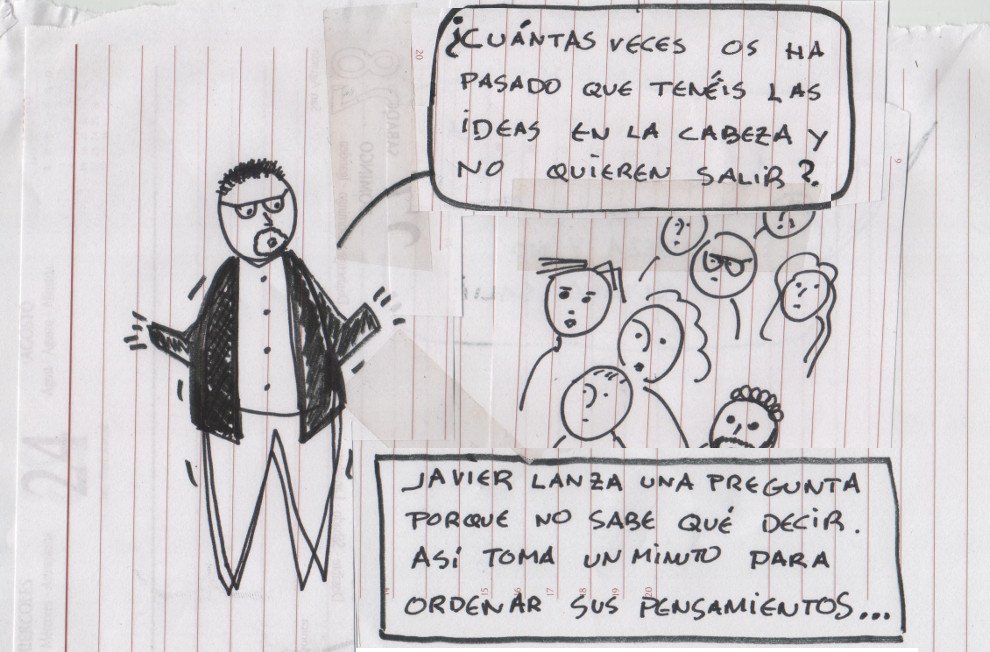 ¿CUÁNTAS VECES OS HA
PASADO QUE TENÉIS LAS
IDEAS EN LA CABEZA Y
NO QUIEREN SALIR?
JAVIER LANZA UNA PREGUNTA
PORQUE NO SABE QUÉ DECIR.
ASÍ TOMA UN MINUTO PARA
ORDENAR SUS PENSAMIENTOS...